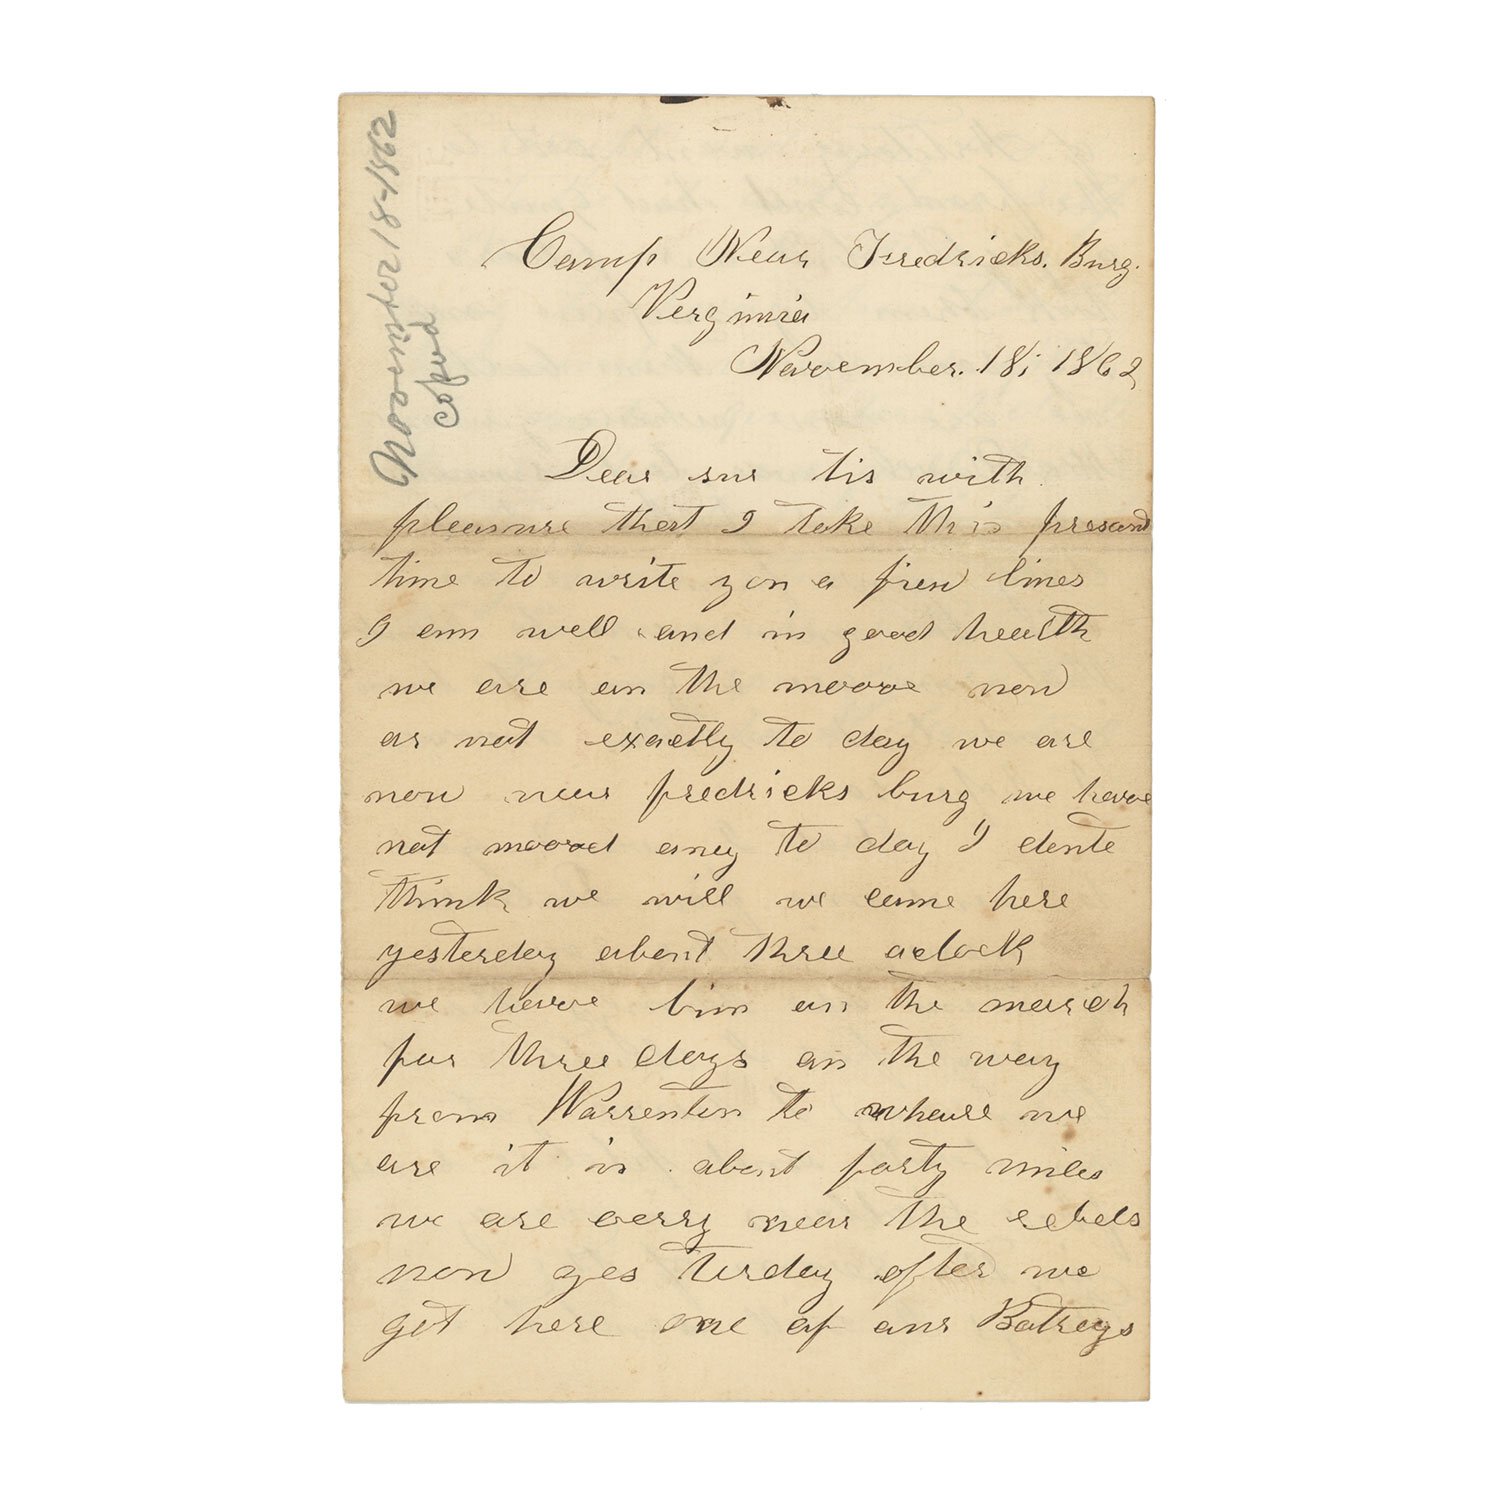 November 18-1862
copied
Camp Near Fredricks. Burg.
Verginia
November. 18; 1862
Dear sur tis with
pleasure that I take this presant
time to write you a few lines
I am well and in good health
we are on the moove now
or not exactly to day we are
now near fredricks burg we have
not mooved aney to day I donte
think we will we came here
yesterday about three oclock
we have bin on the march
for three days on the way
from Warrenton to wheare we
are it is about forty miles
we are verry near the rebels
now yes turday after we
got here one of our Batreys